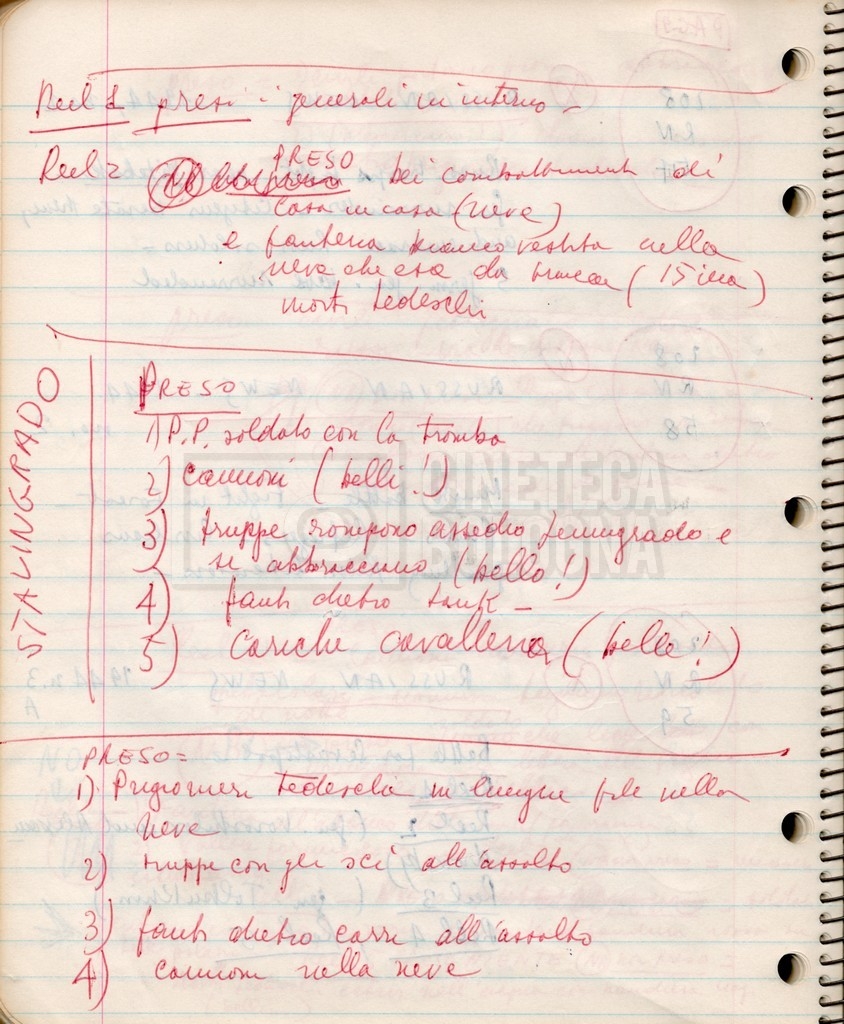 Reel 1 presi - generali in interno -
Reel 2 PRESO - bei combattimenti di
casa in casa (neve)
e fanteria bianco vestita nella
neve che esce da trincea (15 ina)
morti tedeschi
STALINGRADO
PRESO
1) P.P. soldato con la tromba
2) cannoni (belli!)
3) truppe rompono assedio Leningrado e
si abbracciano (bello!)
4) fanti dietro tank -
5) cariche cavalleria (belle!)
PRESO =
1) Prigionieri tedeschi in lunghe file nella
neve
2) truppe con gli sci all'assalto
3) fanti dietro carri all'assalto
4) cannoni nella neve
CINETECA
BOLOGNA